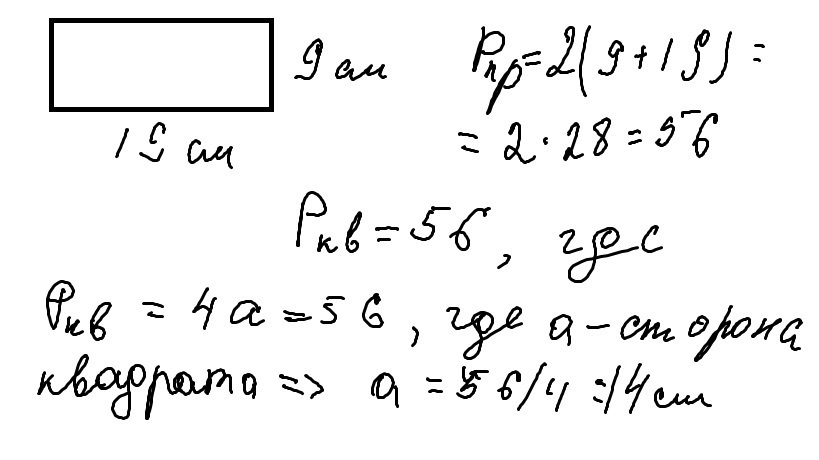 9 см
19 см
Pпр = 2(9 + 19) =
= 2 · 28 = 56
Pкв = 56, где
Pкв = 4a = 56, где a – сторона
квадрата => a = 56/4 = 14 см